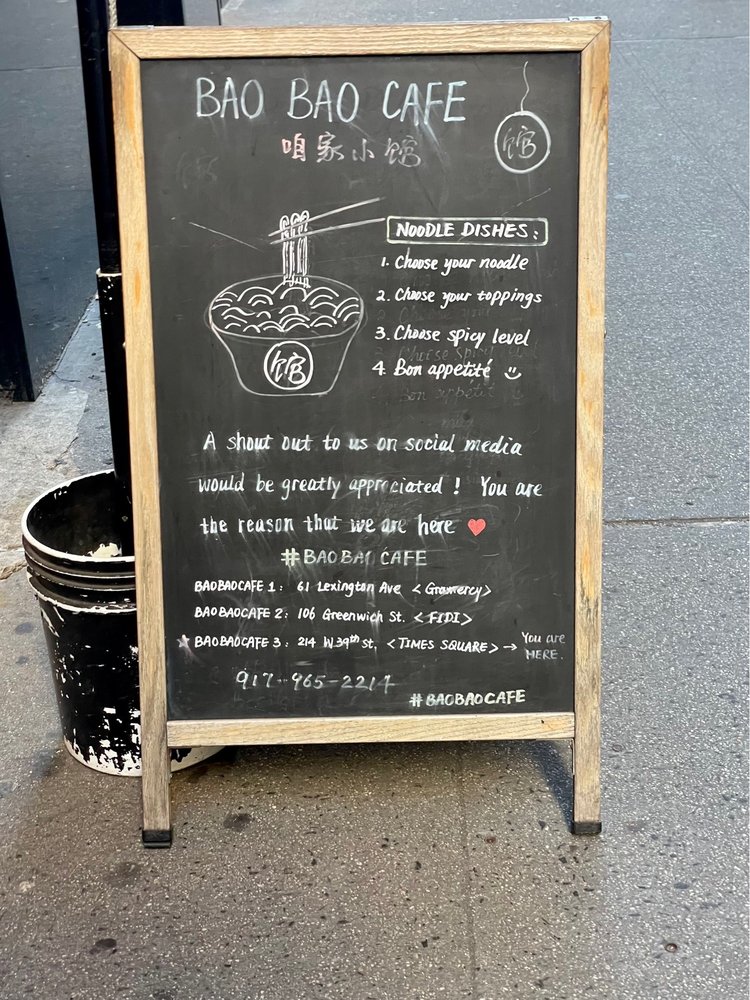 BAO BAO CAFE
咱家小馆
馆
NOODLE DISHES:
1. Choose your noodle
2. Choose your toppings
3. Choose spicy level
4. Bon appetité
馆
A shout out to us on social media
would be greatly appreciated! You are
the reason that we are here ❤️
#BAOBAO CAFE
BAOBAOCAFE 1: 61 Lexington Ave <Gramercy>
BAOBAOCAFE 2: 106 Greenwich St. <FIDI>
☆ BAOBAOCAFE 3: 214 W 39th St, <TIMES SQUARE> → You are HERE.
917-965-2214
#BAOBAOCAFE